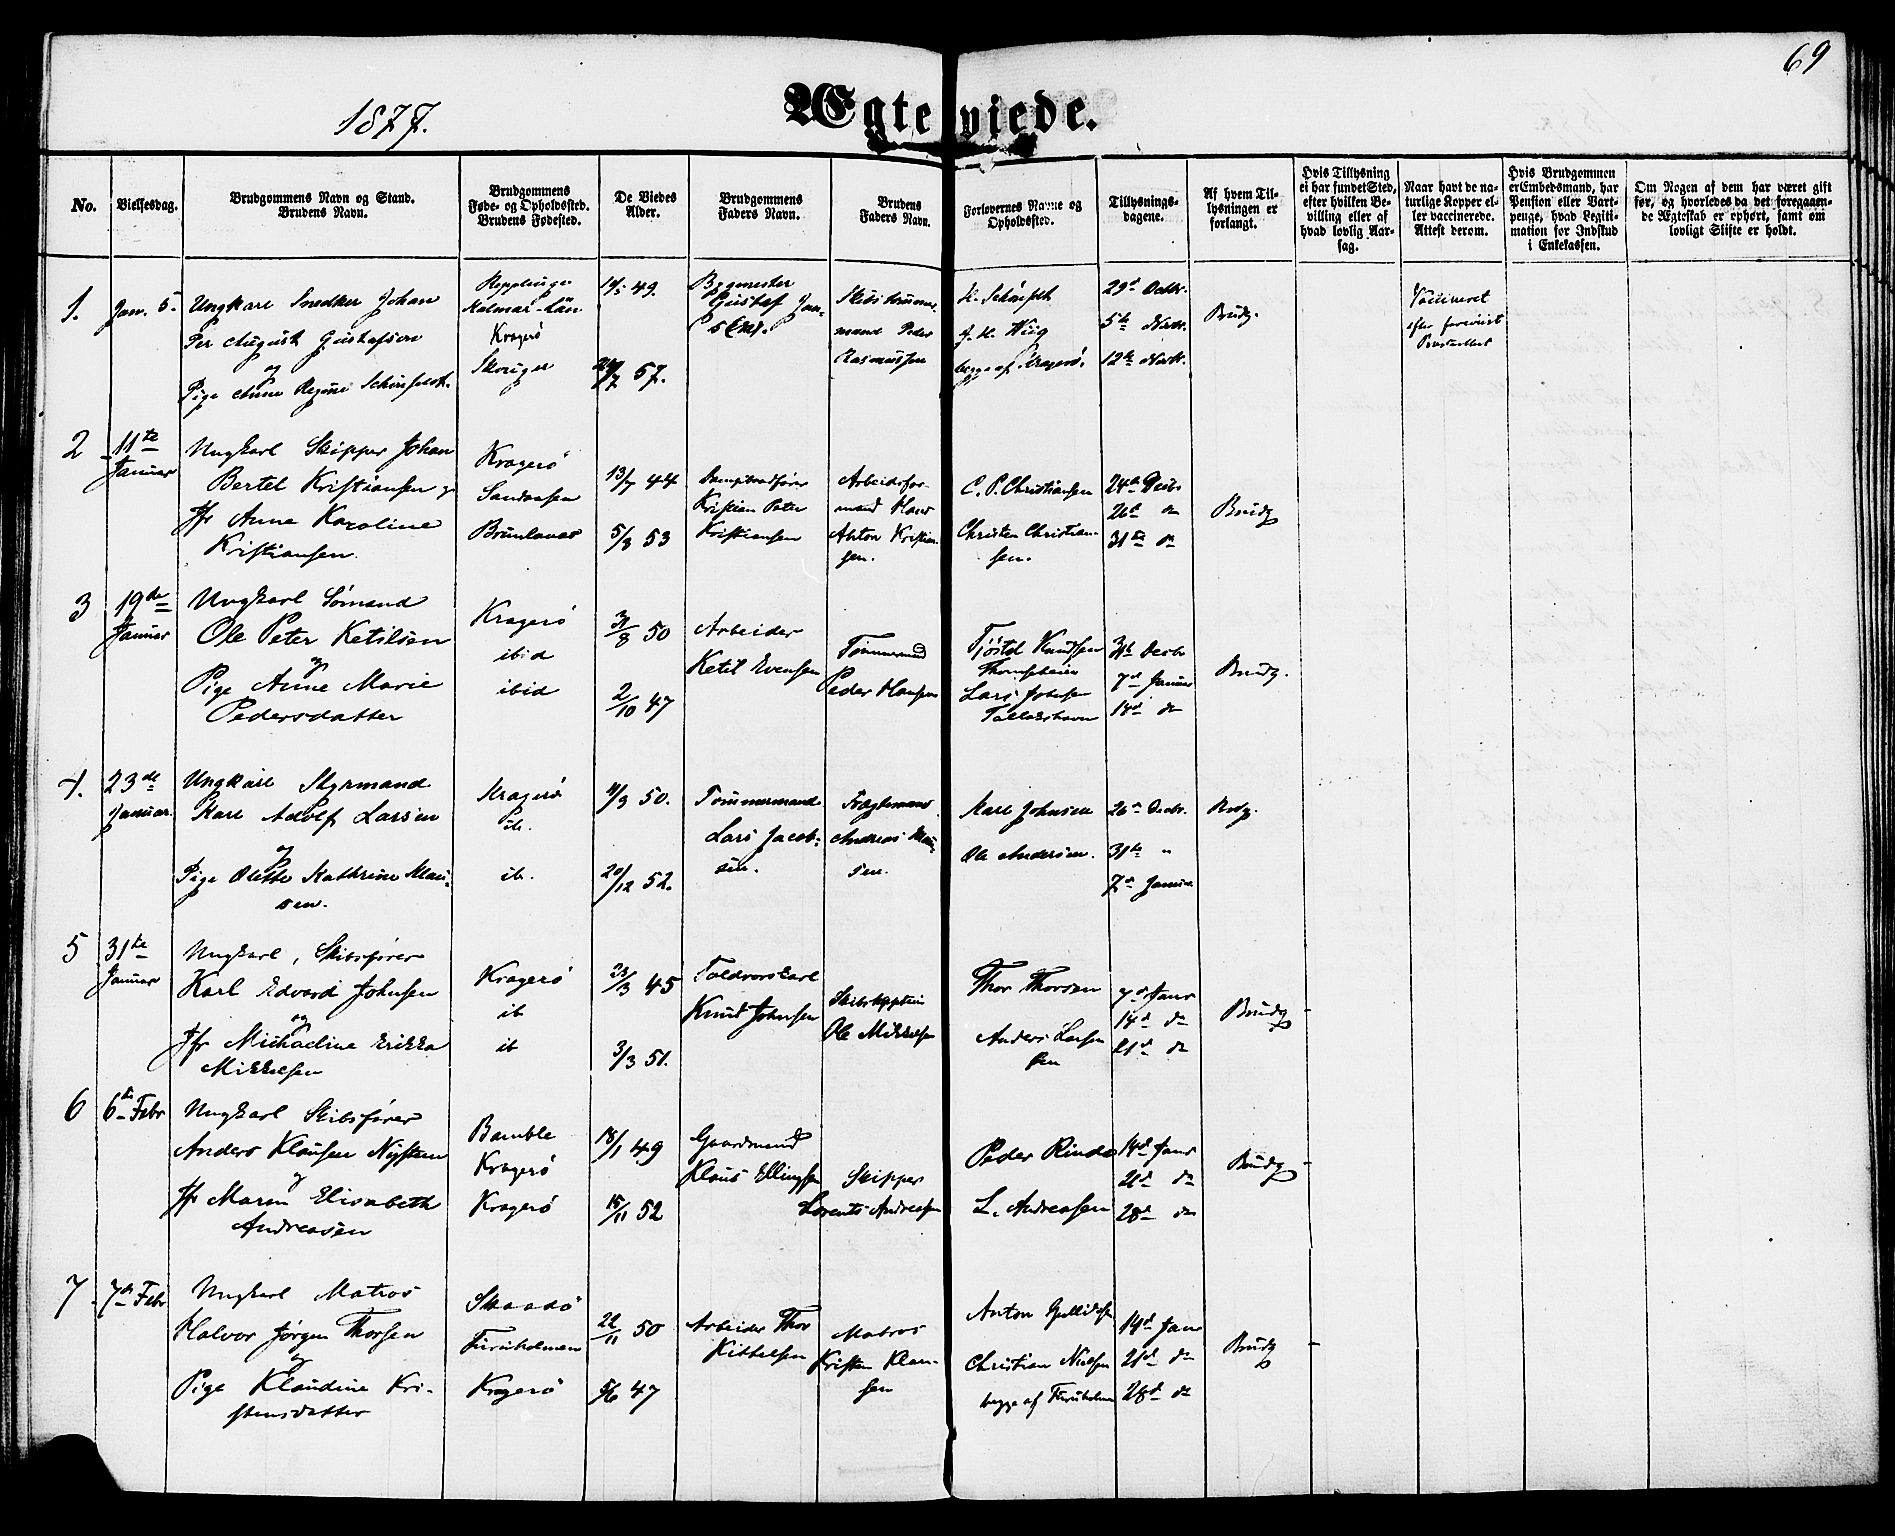 69
1877.
Ægteviede.
No.
Vielsesdag.
Brudgommens Navn og Stand.
Brudens Navn.
Brudgommens
Føde- og Opholdssted.
Brudens Fødested.
De Viedes
Alder.
Brudgommens
Faders Navn.
Brudens
Faders Navn.
Forlovernes Navne og
Opholdssted.
Tillysnings-
dagene.
Af hvem Til-
lysningen er
forlangt.
Hvis Tillysning
ei har fundet Sted,
efter hvilken Be-
villing eller af
hvad lovlig Aar-
sag.
Naar havt de na-
turlige Kopper el-
ler vaccinerede.
Attest derom.
Hvis Brudgommen
er Embedsmand, har
Pension eller Vart-
penge, hvad Legiti-
mation for Indskud
i Enkekassen.
Om Nogen af dem har været gift
før, og hvorledes da det foregaaen-
de Ægteskab er ophørt, samt om
lovligt Skifte er holdt.
1.
Jan. 5.
Ungkarl Snedker Johan
Per August Gustafson
og
Pige Anne Regine
Kalmar Län
Kragerø
49.
57.
Bygmester
Gustaf
mand Peder
Rasmussen
J. H. Wiig
begge af Kragerø.
29d Octbr.
5te Novbr.
12te Novb.
Brudg.
Vaccineret
efter forevist
2
11te
Januar
Ungkarl Skipper Johan
Bertel Kristiansen og
Jfr Anne Karoline
Kristiansen.
Kragerø
Sandaasen
Brunlanæs
13/7 44
5/8 53
Kristian Peter
Kristiansen
Arbeidsfor-
mand Hans
Anton Kristian-
sen.
C. P. Christiansen
Christen Christian-
sen.
24de Decbr
26d do
31te do
Brudg
3
19de
Januar
Ungkarl Sømand
Ole Peter Ketilsen
og
Pige Anne Marie
Pedersdatter
Kragerø
ibid
ibid
31/8 50
2/10 47
Arbeider
Ketil Evensen
Tømmermand
Peder Hansen
Knudsen
Lars Johnsen
31te Decbr
7d Januar
14d do
Brudg.
4.
23de
Januar.
Ungkarl Styrmand
Karl Adolf Larsen
og
Pige Olette Kathrine Mau-
sen.
Kragerø
ib.
ib.
50.
20/12 52.
Tømmermand
Lars Jacob-
sen.
Andreas Mau-
sen.
Karl Johnsen
Ole Andersen.
26de Decbr.
31te "
7de Januar.
Brudg.
5
31te
Januar
Ungkarl, Skibsfører
Karl Edvard Johnsen
og
Jfr Michaeline Erikka
Mikkelsen
Kragerø
ib
ib
23/3 45
3/3 51.
Toldvorskarl
Knud Johnsen
Skibskaptein
Ole Mikkelsen
Thor Thorsen
Anders
sen
7d Janr
14d do
21d do
Brudg
6
6te Febr
Ungkarl Skibsfører
Anders Klausen Nysteen
og
Jfr Maren Elisabeth
Andreasen
Bamble
Kragerø
Kragerø
18/1 49
15/11 52
Gaardmand
Klaus Ellingsen
Skipper
Lorents Andreasen
Peder Rinde
L. Andreasen
14d Janr
21d do
28d do
Brudg
7
7de Febr
Ungkarl Matros
Halvor Jørgen Thorsen
og
Pige Klaudine Kri-
stensdatter
Skaadø
Furuholmen
Kragerø
22/11 50
5/6 47
Arbeider Thor
Kittelsen
Matros
Kristen Klau-
sen
Anton
Christian Nielsen
begge af Furuholmen
14d Janr
21d do
28d do
Brudg